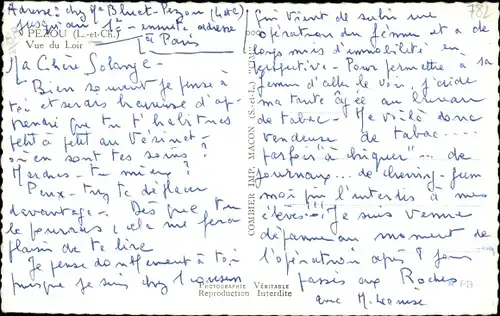 Adresse: chez Me Bluet-Pezou (L-et-C)
jusqu'au 1er - ensuite adresse
à Paris
PEZOU (L.-et-Ch.)
Vue du Loir
Ma Chère Solange -
Bien souvent je pense à
toi et serais heureuse d'ap-
prendre que tu t'habitues
petit à petit au Vésinet -
où en sont tes soins?
Marches-tu mieux?
Peux-tu te déplacer
davantage - Dès que tu
le pourras, cela me fera
plaisir de te lire
Je pense doublement à toi
puisque je suis chez
COMBIER IMP. MACON (S.-et-L.)
PHOTOGRAPHIE VÉRITABLE
Reproduction Interdite
782
qui vient de subir une
opération du fémur et a de
longs mois d'immobilité en
perspective - Pour permettre à sa
d'aller le voir, j'aide
ma tante âgée au bureau
de tabac - Me voilà donc
vendeuse de tabac....
parfois "à chiquer"... de
journaux... de chewing-gum
moi qui l'interdis à mes
élèves!!! Je suis venue
dépanner au moment de
l'opération après 8 jours
passés aux Roches
avec M. Louise